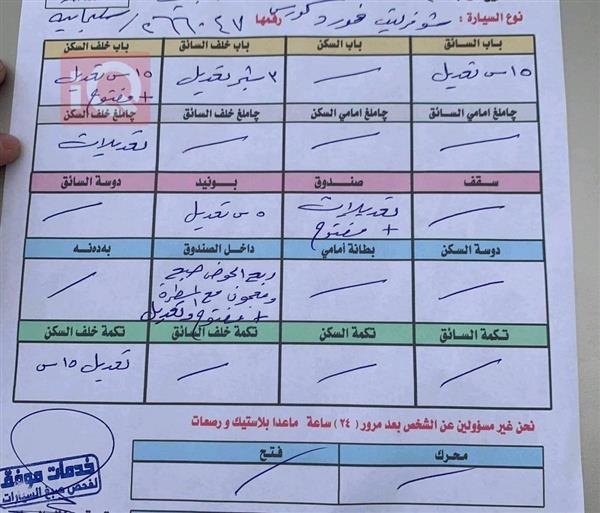 نوع السيارة : شوفرليت فورد رقمها / ٢٦٦٠٤٧ سليمانية
باب السائق باب السكن باب خلف السائق باب خلف السكن
١٥ س تعديل — ٣ شبر تعديل ١٥ س تعديل + مفتوح
چاملغ امامي السائق چاملغ امامي السكن چاملغ خلف السائق چاملغ خلف السكن
— — — تعديلات
سقف صندوق بونيد دوسة السائق
/ تعديلات + مفتوح ٥ س تعديل /
دوسة السكن بطانة أمامي داخل الصندوق بەدەنە
— — ربع الحوض صبغ
ومعجون مع المطرة
+ مفتوح وتعديل /
تكمة السائق تكمة السكن تكمة خلف السائق تكمة خلف السكن
/ — — تعديل ١٥ س
نحن غير مسؤولين عن الشخص بعد مرور (٢٤) ساعة ماعدا بلاستيك و رصعات
محرك فتح
— /
خدمات موفق
لفحص صبغ السيارات